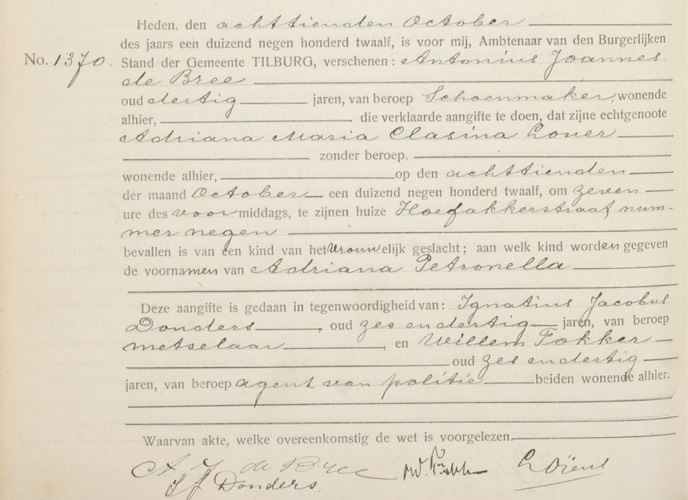 Heden, den achttienden October
des jaars een duizend negen honderd twaalf, is voor mij, Ambtenaar van den Burgerlijken
No. 1370. Stand der Gemeente TILBURG, verschenen: Antonius Joannes
de Bree
oud dertig jaren, van beroep Schoenmaker, wonende
alhier, die verklaarde aangifte te doen, dat zijne echtgenoote
Adriana Maria Clasina Louer
zonder beroep,
wonende alhier, op den achttienden
der maand October een duizend negen honderd twaalf, om zeven
ure des voormiddags, te zijnen huize Hoefakkerstraat num-
mer negen
bevallen is van een kind van het vrouwelijk geslacht; aan welk kind worden gegeven
de voornamen van Adriana Petronella
Deze aangifte is gedaan in tegenwoordigheid van: Ignatius Jacobus
Donders, oud zes endertig jaren, van beroep
metselaar, en Willem Fokker
oud zes endertig
jaren, van beroep agent van politie beiden wonende alhier.
Waarvan akte, welke overeenkomstig de wet is voorgelezen.
A. J. de Bree
I J Donders